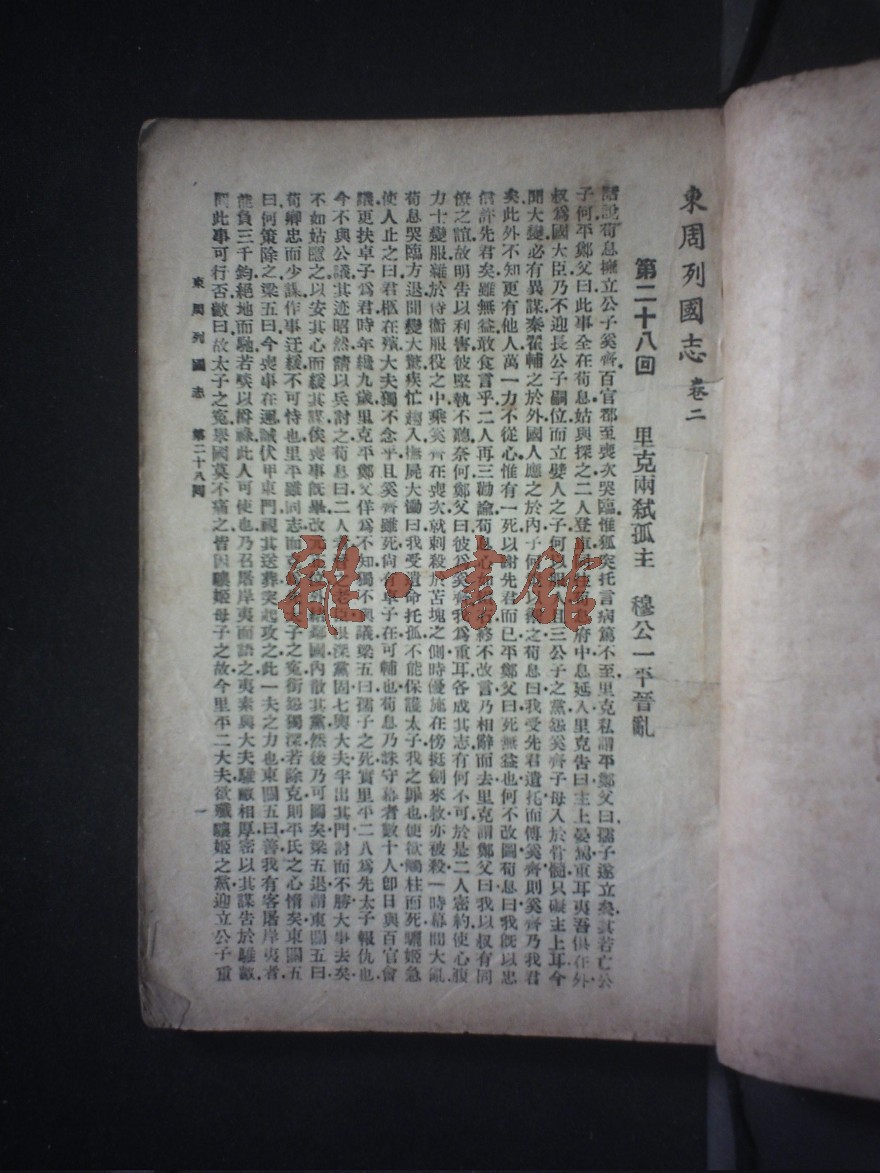 東周列國志 卷二
第二十八回 里克兩弑孤主 穆公一平晉亂
話說荀息擁立公子奚齊百官都至喪次哭臨惟狐突托言病篤不至里克私謂㔻鄭父曰孺子遂立矣其若亡公
子何㔻鄭父曰此事全在荀息姑與探之二人登車同荀府中息延入里克告曰主上晏駕重耳夷吾俱在外
叔爲國大臣乃不迎長公子嗣位而立嬖人之子何以服且三公子之黨怨奚齊子母入於骨髓只礙主上耳今
聞大變必有異謀秦翟輔之於外國人應之於內子何以禦之荀息曰我受先君遺托而傅奚齊則奚齊乃我君
矣此外不知更有他人萬一力不從心惟有一死以謝先君而已㔻鄭父曰死無益也何不改圖荀息曰我旣以忠
信許先君矣雖無益敢食言乎二人再三勸諭荀息心如終不改言乃相辭而去里克謂鄭父曰我以叔有同
僚之誼故明告以利害彼堅執不聽奈何鄭父曰彼爲奚齊我爲重耳各成其志有何不可於是二人密約使心腹
力士變服雜於侍衛服役之中乘奚齊在喪次就刺殺於苫塊之側時優施在傍挺劍來救亦被殺一時幕間大亂
荀息哭臨方退聞變大驚疾忙趨入撫屍大慟曰我受遺命托孤不能保護太子我之罪也便欲觸柱而死驪姬急
使人止之曰君柩在殯大夫獨不念乎且奚齊雖死尙有卓子在可輔也荀息乃誅守幕者數十人卽日與百官會
議更扶卓子爲君時年纔九歲里克㔻鄭父佯爲不知獨不與議梁五曰孺子之死實里㔻二人爲先太子報仇也
今不與公議其迹昭然請以兵討之荀息曰二人者晉之老臣根深黨固七輿大夫半出其門討而不勝大事去矣
不如姑隱之以安其心而緩其謀俟喪事旣畢改元正位外結鄰國內散其黨然後乃可圖矣梁五退謂東關五曰
荀卿忠而少謀作事迂緩不可恃也里㔻雖同志而克先太子之冤銜怨獨深若除克則㔻氏之心惰矣東關五
曰何策除之梁五曰今喪事在邇誠伏甲東門視其送葬突起攻之此一夫之力也東關五曰善我有客屠岸夷者
能負三千鈞絕地而馳若啖以爵祿此人可使也乃召屠岸夷而語之夷素與大夫騅遄相厚密以其謀告於騅遄
問此事可行否遄曰故太子之冤舉國莫不痛之皆因驪姬母子之故今里㔻二大夫欲殲驪姬之黨迎立公子重
東周列國志 第二十八回 一
雅·書館